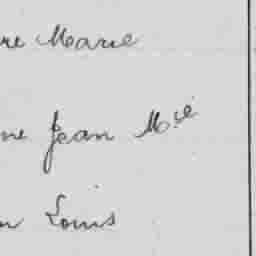 re Marie
ne Jean M.ie
n Louis